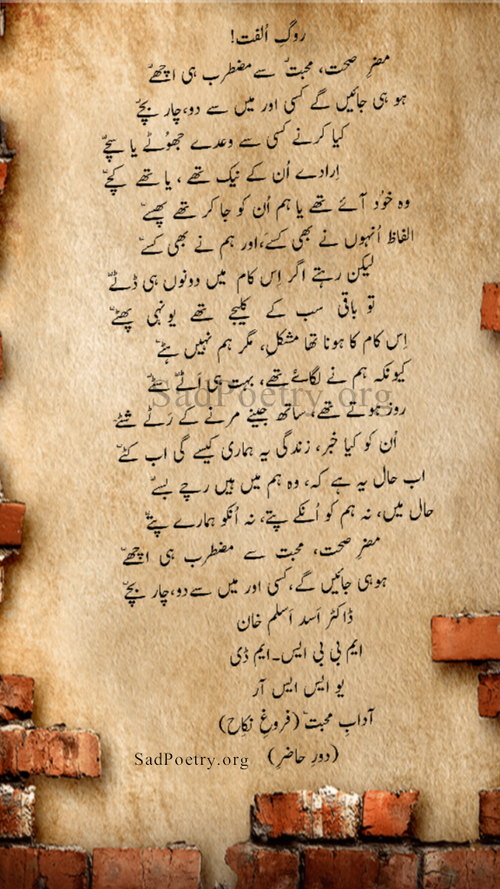 روگِ اُلفت!
مضرِ صحت، محبتؔ سے مضطرب ہی اچھےؔ
ہو ہی جائیں گے کسی اور میں سے دو،چار بچےؔ
کیا کرنے کسی سے وعدے جھوُٹے یا سچےؔ
اِرادے اُن کے نیک تھے ، یا تھے کچےؔ
وہ خوُد آئے تھے یا ہم اُن کو جا کر تھے پھسےؔ
الفاظ اُنہوں نے بھی کسے،اور ہم نے بھی کسےؔ
لیکن رہتے اگر اِس کام میں دونوں ہی ڈٹےؔ
تو باقی سب کے کلیجے تھے یونہی پھٹےؔ
اِس کام کا ہونا تھا مشکل، مگر ہم نہیں ہٹےؔ
کیونکہ ہم نے لگائے تھے، بہت ہی اَٹے سٹےؔ
SadPoetry.org
روز ہوتے تھے، ساتھ جینے مرنے کے رَٹے شٹےؔ
اُن کو کیا خبر، زندگی یہ ہماری کیسے گی اب کٹےؔ
اب حال یہ ہے کہ، وہ ہم میں ہیں رچے بسےؔ
حال میں، نہ ہم کو اُنکے پتے، نہ اُنکو ہمارے پتےؔ
مضرِ صحت، محبت سے مضطرب ہی اچھےؔ
ہوہی جائیں گے،کسی اور میں سےدو،چار بچےؔ
ڈاکٹر اَسد اَسلم خان
ایم بی بی ایس۔ایم ڈی
یو ایس ایس آر
آدابِ محبتؔ (فروغِ نکاح)
(دورِ حاضر) SadPoetry.org